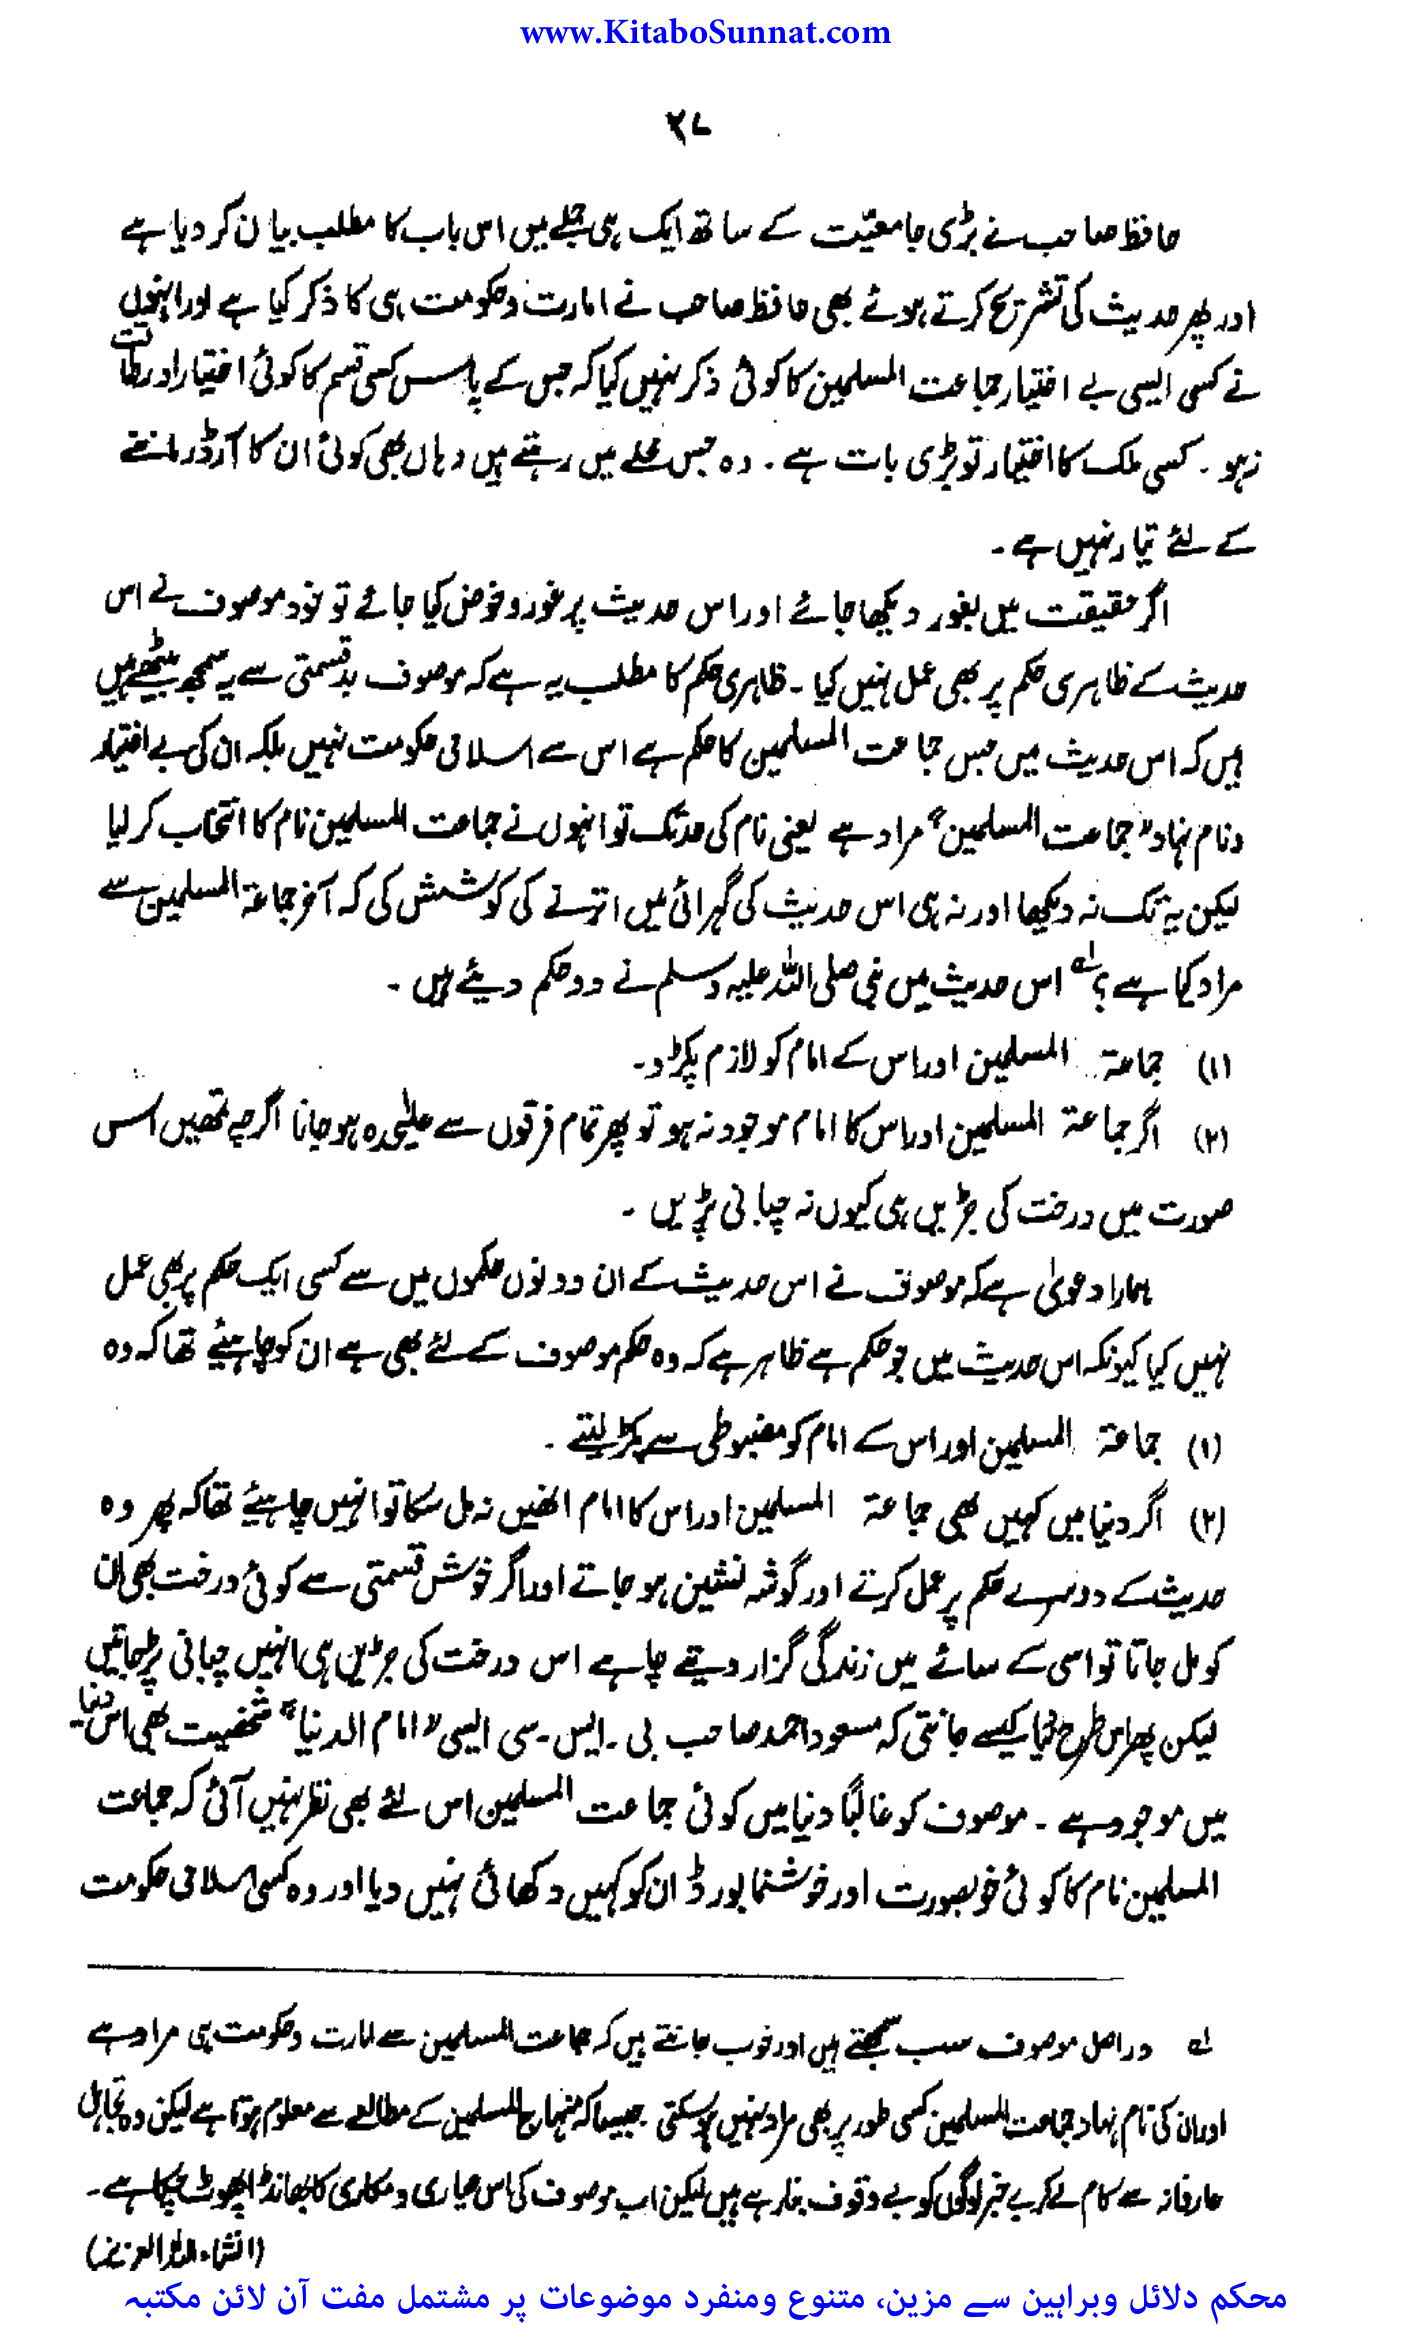 www.KitaboSunnat.com
۲۷
حافظ صاحب نے بڑی جامعیّت کے ساتھ ایک ہی جملے میں اس باب کا مطلب بیان کر دیا ہے
اور پھر حدیث کی تشریح کرتے ہوئے بھی حافظ صاحب نے امارت وحکومت ہی کا ذکر کیا ہے اور انہوں
نے کسی ایسی بے اختیار جماعت المسلمین کا کوئی ذکر نہیں کیا کہ جس کے پاس کسی قسم کا کوئی اختیار اور طاقت
نہ ہو ۔ کسی ملک کا اختیار تو بڑی بات ہے ۔ وہ جس محلے میں رہتے ہیں وہاں بھی کوئی ان کا آرڈر ماننے
کے لئے تیار نہیں ہے ۔
اگر حقیقت میں بغور دیکھا جائے اور اس حدیث پر غور و خوض کیا جائے تو خود موصوف نے اس
حدیث کے ظاہری حکم پر بھی عمل نہیں کیا ۔ ظاہری حکم کا مطلب یہ ہے کہ موصوف بدقسمتی سے یہ سمجھ بیٹھے ہیں
ہیں کہ اس حدیث میں جس جماعت المسلمین کا حکم ہے اس سے اسلامی حکومت نہیں بلکہ ان کی بے اختیار
ونام نہاد "جماعت المسلمین" مراد ہے یعنی نام کی حد تک تو انہوں نے جماعت المسلمین نام کا انتخاب کر لیا
لیکن یہ تک نہ دیکھا اور نہ ہی اس حدیث کی گہرائی میں اترنے کی کوشش کی کہ آخر جماعۃ المسلمین سے
مراد کیا ہے ؟ لہ اس حدیث میں نبی صلی اللہ علیہ وسلم نے دو حکم دیئے ہیں ۔
(۱) جماعۃ المسلمین اور اس کے امام کو لازم پکڑو ۔
(۲) اگر جماعۃ المسلمین اور اس کا امام موجود نہ ہو تو پھر تمام فرقوں سے علیٰحدہ ہو جانا اگرچہ تمھیں اس
صورت میں درخت کی جڑیں ہی کیوں نہ چبانی پڑیں ۔
ہمارا دعویٰ ہے کہ موصوف نے اس حدیث کے ان دونوں حکموں میں سے کسی ایک حکم پر بھی عمل
نہیں کیا کیونکہ اس حدیث میں جو حکم ہے ظاہر ہے کہ وہ حکم موصوف کے لئے بھی ہے ان کو چاہیئے تھا کہ وہ
(۱) جماعۃ المسلمین اور اس کے امام کو مضبوطی سے پکڑ لیتے ۔
(۲) اگر دنیا میں کہیں بھی جماعۃ المسلمین اور اس کا امام انھیں نہ مل سکا تو انہیں چاہیئے تھا کہ پھر وہ
حدیث کے دوسرے حکم پر عمل کرتے اور گوشہ نشین ہو جاتے اور اگر خوش قسمتی سے کوئی درخت بھی ان
کو مل جاتا تو اسی کے سائے میں زندگی گزار دیتے چاہے اس درخت کی جڑیں ہی انہیں چبانی پڑ جاتیں
لیکن پھر اس طرح دنیا کیسے جانتی کہ مسعود احمد صاحب بی ۔ ایس ۔ سی ایسی "امام الدنیا" شخصیت بھی اس دنیا
میں موجود ہے ۔ موصوف کو غالباً دنیا میں کوئی جماعت المسلمین اس لئے بھی نظر نہیں آئی کہ جماعت
المسلمین نام کا کوئی خوبصورت اور خوشنما بورڈ ان کو کہیں دکھائی نہیں دیا اور وہ کسی اسلامی حکومت
لہ دراصل موصوف سب سمجھتے ہیں اور خوب جانتے ہیں کہ جماعت المسلمین سے امارت وحکومت ہی مراد ہے
اور ان کی نام نہاد جماعت المسلمین کسی طور پر بھی مراد نہیں ہو سکتی جیسا کہ منہاج المسلمین کے مطالعے سے معلوم ہوتا ہے لیکن وہ تجاہل
عارفانہ سے کام لے کر بے خبر لوگوں کو بے وقوف بنا رہے ہیں لیکن اب موصوف کی اس عیاری و مکاری کا بھانڈا پھوٹ چکا ہے ۔
(انشاء اللہ العزیز)
محکم دلائل وبراہین سے مزین، متنوع ومنفرد موضوعات پر مشتمل مفت آن لائن مکتبہ